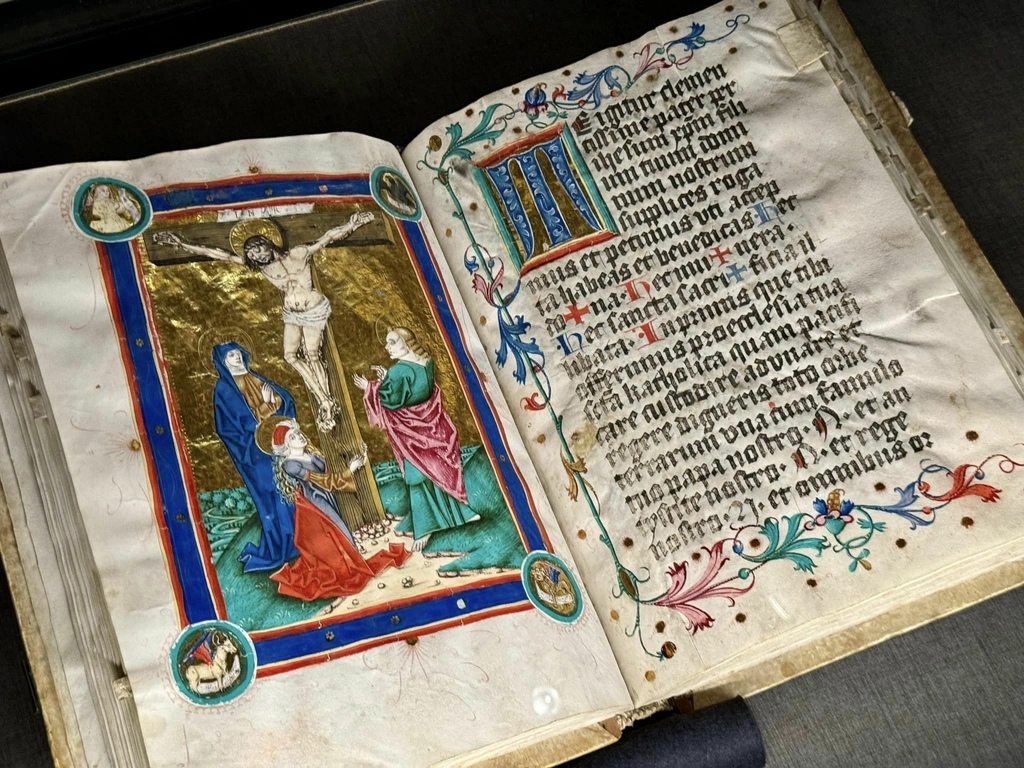 INRI
T E igitur clemen
tissime pater per
ihesum xpm fili
um tuum domi
num nostrum
supplices roga
mus et petimus vti accep
ta habeas et benedicas Hec
do ✠ na · Hec mu ✠ nera ·
Hec sancta sacri ✠ ficia il
libata · Inprimis que tibi
offerimus pro ecclesia tua
scta katholica quam pacifi
care custodire adunare et
regere digneris toto orbe
terrarum vna cum famulo
tuo papa nostro · N · et an
tistite nostro · N · et rege
nostro · N · et omnibus or